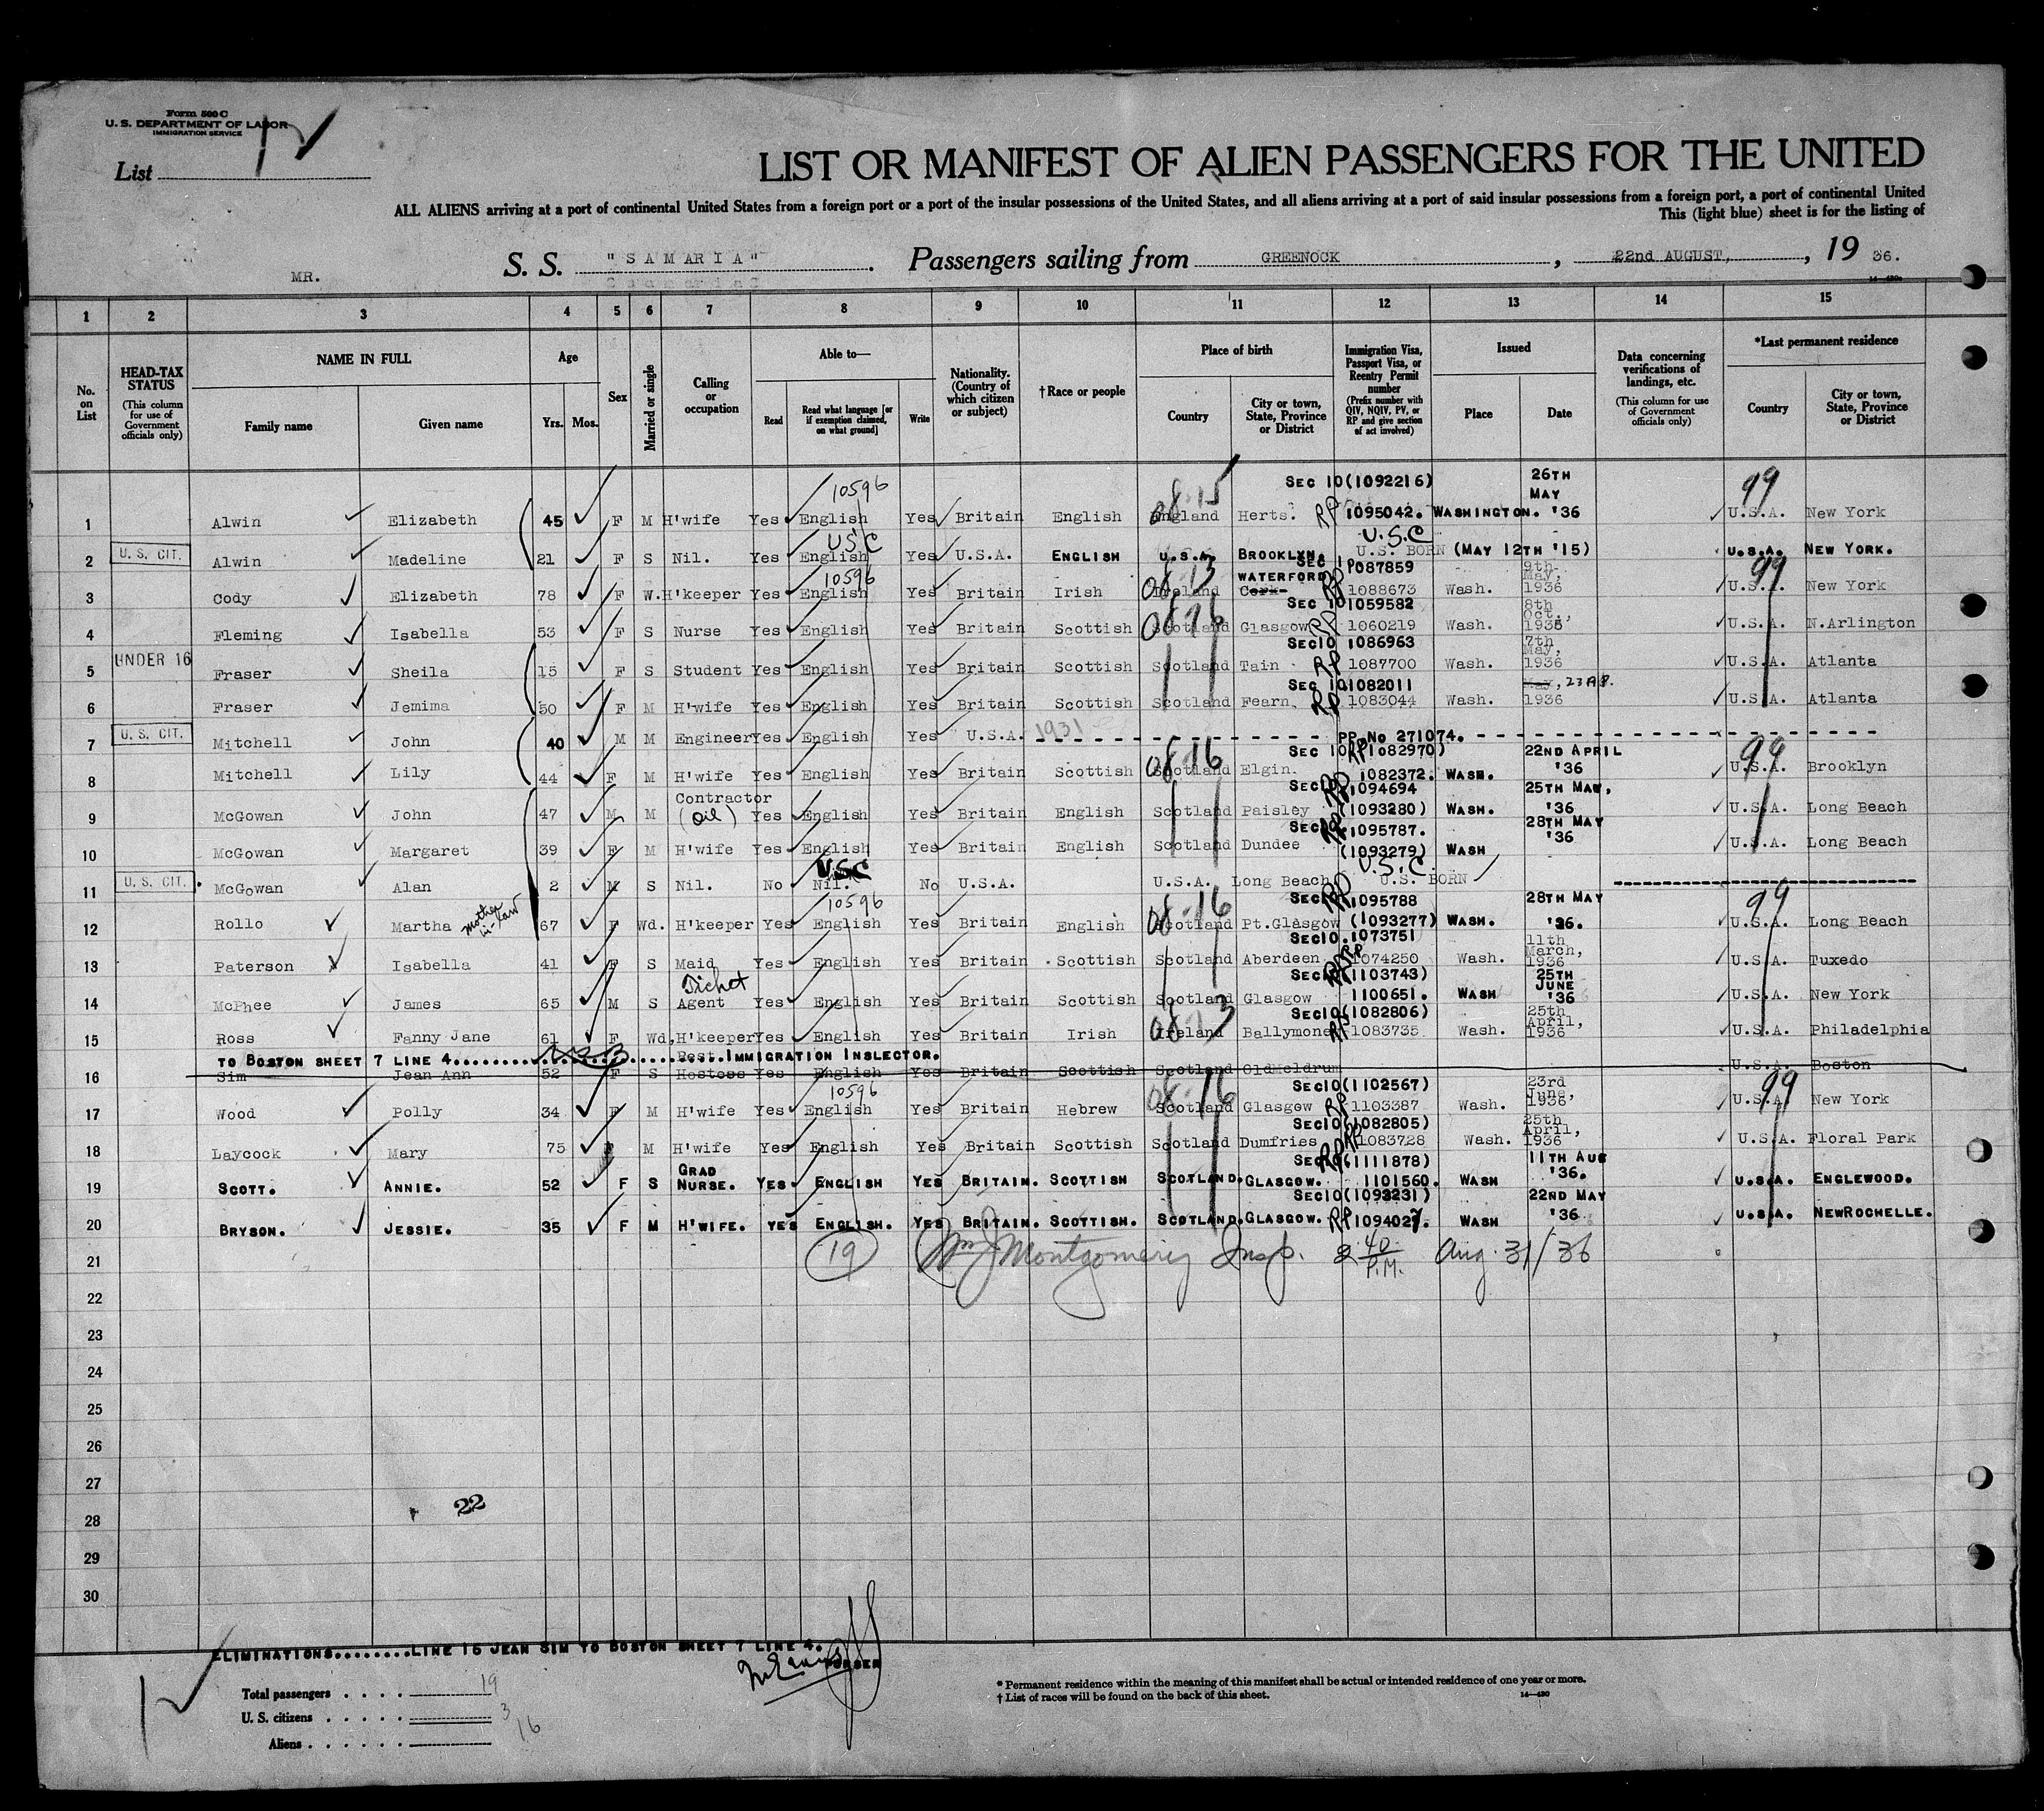 Form 500 C
U. S. DEPARTMENT OF LABOR
IMMIGRATION SERVICE
List
LIST OR MANIFEST OF ALIEN PASSENGERS FOR THE UNITED
ALL ALIENS arriving at a port of continental United States from a foreign port or a port of the insular possessions of the United States, and all aliens arriving at a port of said insular possessions from a foreign port, a port of continental United
This (light blue) sheet is for the listing of
MR. S. S. "SAMARIA" . Passengers sailing from GREENOCK , 22nd AUGUST, , 19 36.
1 2 3 4 5 6 7 8 9 10 11 12 13 14 15
No. on List
HEAD-TAX STATUS (This column for use of Government officials only)
NAME IN FULL Family name Given name
Age Yrs. Mos.
Sex
Married or single
Calling or occupation
Able to— Read Read what language [or if exemption claimed, on what ground] Write
Nationality. (Country of which citizen or subject)
† Race or people
Place of birth Country City or town, State, Province or District
Immigration Visa, Passport Visa, or Reentry Permit number (Prefix number with QIV, NQIV, PV, or RP and give section of act involved)
Issued Place Date
Data concerning verifications of landings, etc. (This column for use of Government officials only)
*Last permanent residence Country City or town, State, Province or District
10596 SEC 10 (1092216) 26TH MAY 99
1 Alwin Elizabeth 45 F M H'wife Yes English Yes Britain English England Herts. RP 1095042. WASHINGTON. '36 U.S.A. New York
USC U.S.C
2 U. S. CIT. Alwin Madeline 21 F S Nil. Yes English Yes U.S.A. ENGLISH U.S.A. BROOKLYN. U.S. BORN (MAY 12TH '15) U.S.A. NEW YORK.
10596 WATERFORD SEC 10 1087859 9th May, 99
3 Cody Elizabeth 78 F W. H'keeper Yes English Yes Britain Irish Ireland Cork RP 1088673 Wash. 1936 U.S.A. New York
SEC 10 1059582 8th Oct.,
4 Fleming Isabella 53 F S Nurse Yes English Yes Britain Scottish Scotland Glasgow RP 1060219 Wash. 1935 U.S.A. N.Arlington
SEC10 1086963 7th May,
5 UNDER 16 Fraser Sheila 15 F S Student Yes English Yes Britain Scottish Scotland Tain RP 1087700 Wash. 1936 U.S.A. Atlanta
SEC 10 1082011 May,
6 Fraser Jemima 50 F M H'wife Yes English Yes Britain Scottish Scotland Fearn. RP 1083044 Wash. 1936 U.S.A. Atlanta
7 U. S. CIT. Mitchell John 40 M M Engineer Yes English Yes U.S.A. 1931 PP No 271074.
SEC 10 RP (1082970) 22ND APRIL 99
8 Mitchell Lily 44 F M H'wife Yes English Yes Britain Scottish Scotland Elgin. 1082372. WASH. '36 U.S.A. Brooklyn
Contractor SEC10 RP 1094694 25TH MAY,
9 McGowan John 47 M M (Oil) Yes English Yes Britain English Scotland Paisley (1093280) WASH. '36 U.S.A. Long Beach
SEC10 1095787. 28TH MAY
10 McGowan Margaret 39 F M H'wife Yes English Yes Britain English Scotland Dundee (1093279) WASH '36 U.S.A. Long Beach
USC U.S.C.
11 U. S. CIT. McGowan Alan 2 M S Nil. No Nil. No U.S.A. U.S.A. Long Beach U.S. BORN
10596 SEC10 RP 1095788 28TH MAY 99
12 Rollo Martha Mother in-law 67 F Wd. H'keeper Yes English Yes Britain English Scotland Pt.Glasgow (1093277) WASH. '36. U.S.A. Long Beach
SEC10. 1073751 11th March,
13 Paterson Isabella 41 F S Maid Yes English Yes Britain Scottish Scotland Aberdeen RP 1074250 Wash. 1936 U.S.A. Tuxedo
Ticket SEC10 (1103743) 25TH JUNE
14 McPhee James 65 M S Agent Yes English Yes Britain Scottish Scotland Glasgow 1100651. WASH '36 U.S.A. New York
SEC10 (1082806) 25th April,
15 Ross Fanny Jane 61 F Wd, H'keeper Yes English Yes Britain Irish Ireland Ballymoney RP 1083735 Wash. 1936 U.S.A. Philadelphia
TO BOSTON SHEET 7 LINE 4. Rest. IMMIGRATION INSLECTOR.
16 Sim Jean Ann 52 F S Hostess Yes English Yes Britain Scottish Scotland OldMeldrum U.S.A. Boston
10596 SEC10 (1102567) 23rd June, 99
17 Wood Polly 34 F M H'wife Yes English Yes Britain Hebrew Scotland Glasgow RP 1103387 Wash. 1936 U.S.A. New York
SEC10 (1082805) 25th April,
18 Laycock Mary 75 F M H'wife Yes English Yes Britain Scottish Scotland Dumfries RP 1083728 Wash. 1936 U.S.A. Floral Park
GRAD SEC10 (1111878) 11TH AUG
19 SCOTT. ANNIE. 52 F S NURSE. YES ENGLISH YES BRITAIN. SCOTTISH SCOTLAND. GLASGOW. 1101560. WASH '36. U.S.A. ENGLEWOOD.
SEC10 (1093231) 22ND MAY
20 BRYSON. JESSIE. 35 F M H'WIFE. YES ENGLISH. YES BRITAIN. SCOTTISH. SCOTLAND. GLASGOW. RP 1094027. WASH '36 U.S.A. NEWROCHELLE.
21 19 Wm J Montgomery Insp. 2 40 P.M. Aug. 31/36
22
23
24
25
26
27
22
28
29
30
ELIMINATIONS........LINE 16 JEAN SIM TO BOSTON SHEET 7 LINE 4.
PURSER
Total passengers 19
U. S. citizens 3
Aliens 16
* Permanent residence within the meaning of this manifest shall be actual or intended residence of one year or more.
† List of races will be found on the back of this sheet.
14—430